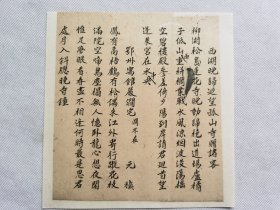 西湖晚歸迴望孤山寺贈諸客
柳湖松島蓮花寺晚動歸橈出道場盧橘
子低山雨重栟櫚葉戰水風涼煙波淡蕩搖
空碧樓殿參差倚夕陽到岸請君迴首望
蓬萊宮在水中央
鄂州寓館嚴澗宅 時不在 元稹
鳳有高梧鶴有松偶來江外寄行蹤花枝
滿院空啼鳥塵榻無人憶臥龍心想夜閒
惟足夢眼看春盡不相逢何時最是思君
處月入斜窗曉寺鐘